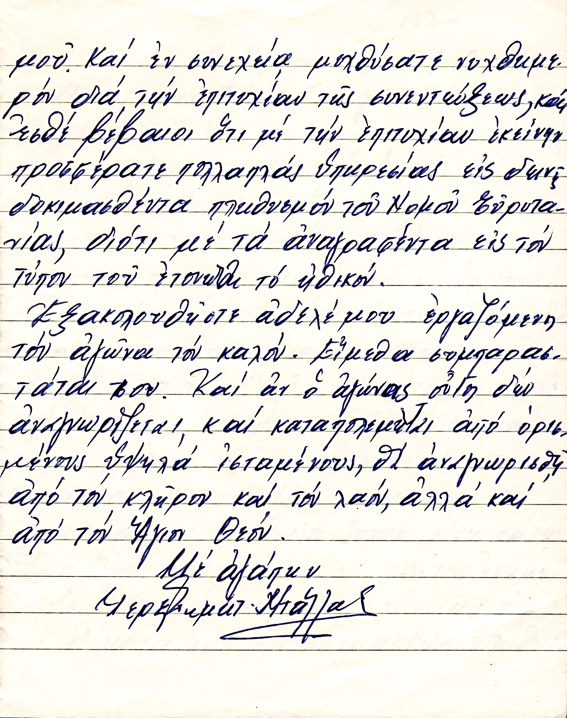 μοῦ. Καί ἐν συνεχείᾳ μοχθήσατε νυχθημε-
ρόν διά τήν ἐπιτυχίαν τῆς συνεντεύξεως, καί
ἔσθέ βέβαιοι ὅτι μέ τήν ἐπιτυχίαν ἐκείνην
προσφέρατε πολλαπλάς ὑπηρεσίας εἰς δεινῶς
δοκιμασθέντα πληθυσμόν τοῦ Νομοῦ Εὐρυτα-
νίας, διότι μέ τά ἀναγραφέντα εἰς τόν
τύπον τοῦ ἐτονώθη τό ἠθικόν.
Ἐξακολουθῆστε ἀδελφέ μου ἐργαζόμενη
τόν ἀγῶνα τόν καλόν. Εἴμεθα συμπαρασ-
τάται σου. Καί ἄν ὁ ἀγώνας οὗτος δέν
ἀναγνωρίζεται, καί καταπολεμῆται ἀπό ὁρισ-
μένους ὑψηλά ἱσταμένους, θά ἀναγνωρισθῇ
ἀπό τόν κλῆρον καί τόν λαόν, ἀλλά καί
ἀπό τόν Ἅγιον Θεόν.
Μέ ἀγάπην